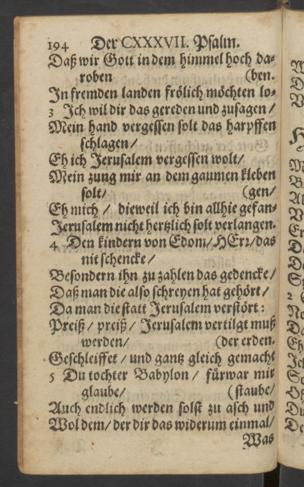 194 Der CXXXVII. Psalm.
Daß wir Gott in dem himmel hoch da-
roben (ben.
In fremden landen frölich möchten lo-
3 Ich wil dir das gereden und zusagen /
Mein hand vergessen solt das harpffen
schlagen /
Eh ich Jerusalem vergessen wolt /
Mein zung mir an dem gaumen kleben
solt / (gen /
Eh mich / dieweil ich bin allhie gefan-
Jerusalem nicht hertzlich solt verlangen.
4 Den kindern von Edom / HErr / das
nit schencke /
Besondern ihn zu zahlen das gedencke /
Daß man die also schreyen hat gehört /
Da man die statt Jerusalem verstört:
Preiß / preiß / Jerusalem vertilgt muß
werden / (der erden.
Geschleiffet / und gantz gleich gemacht
5 Du tochter Babylon / fürwar mir
glaube / (staube /
Auch endlich werden solst zu asch und
Wol dem / der dir das widerum einmal /
Was